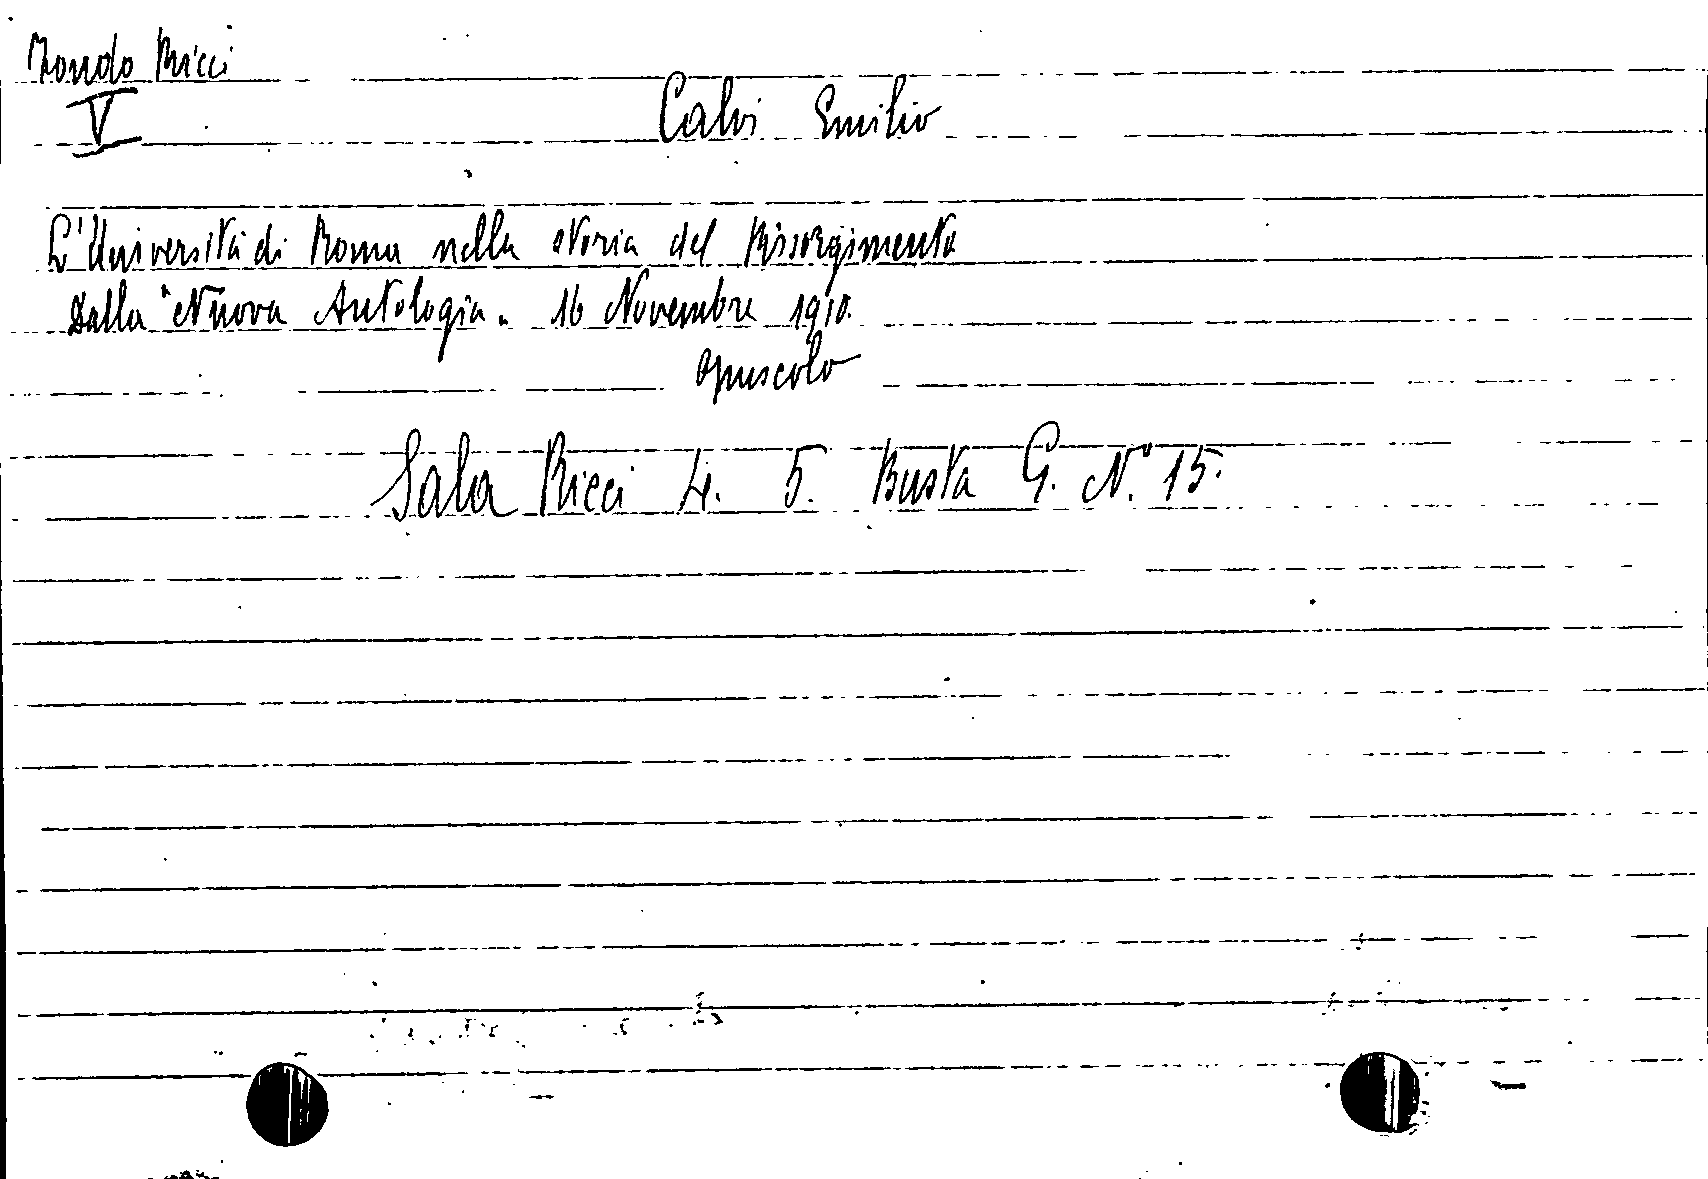 Fondo Ricci
V
Calvi Emilio
L'Università di Roma nella storia del Risorgimento
Dalla "Nuova Antologia" 16 Novembre 1910.
opuscolo
Sala Ricci 4. 5. Busta G. N° 15.